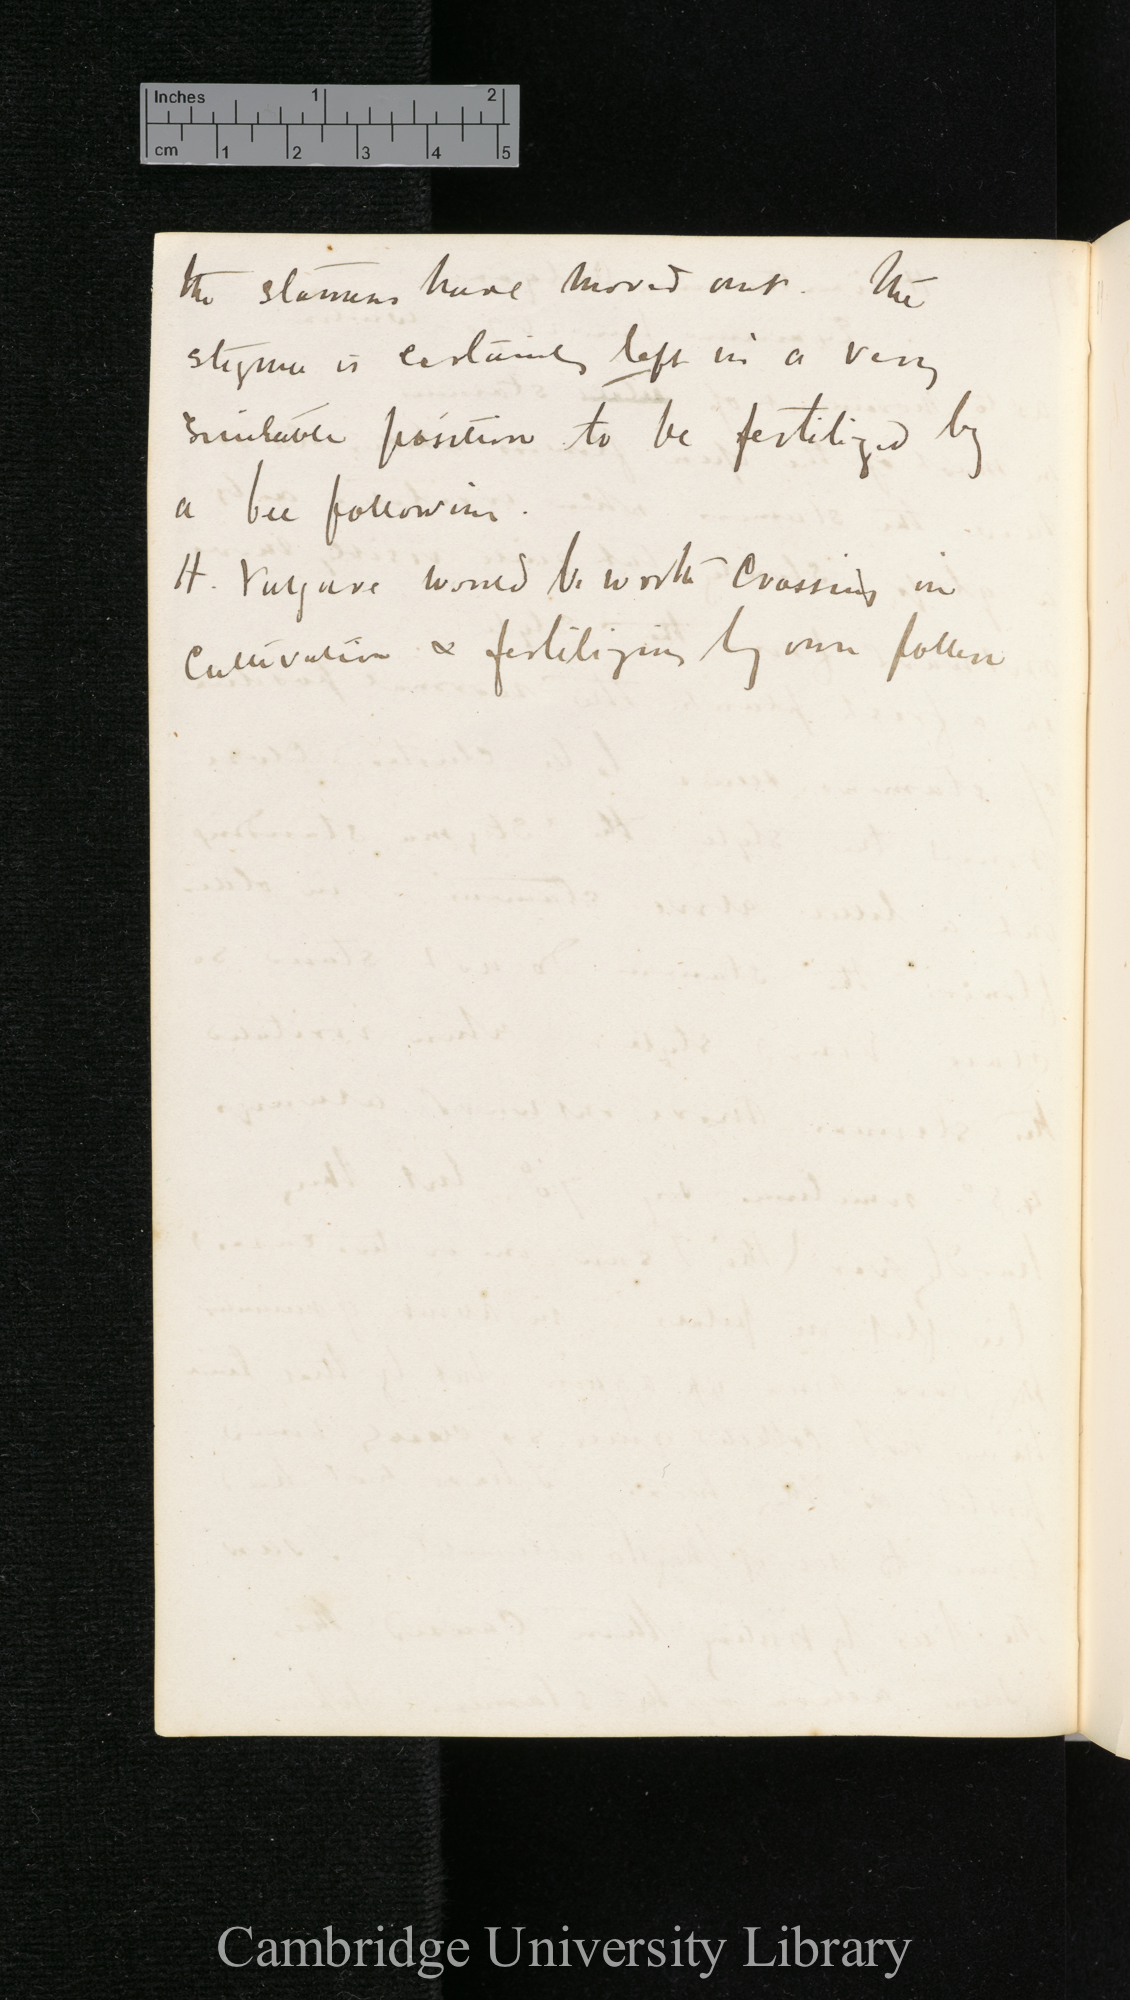 Inches 1 2
cm 1 2 3 4 5
the stamens have moved out. The
stigma is certainly left in a very
suitable position to be fertilized by
a bee following.
H. Vulgare would be worth Crossing in
Cultivation & fertilizing by own pollen
Cambridge University Library